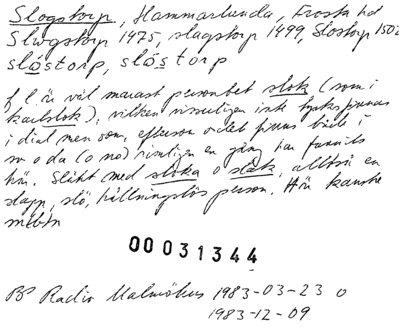 Slogstorp, Hammarlunda, Frosta hd
Slwgstorp 1475, slagstorp 1499, Slostorp 1502
slåstorp, slåstorp
f.l. är väl manast personbet slok (som i
karlslok), vilken visserligen inte tycks finnas
i dial men som, eftersom ordet finns både i
sv o da (o no) rimligen en gång har funnits
här. Släkt med sloka o slak, alltså en
slapp, slö, hållningslös person. Här kanske
00031344
BP Radio Malmöhus 1983-03-23 o
1983-12-09